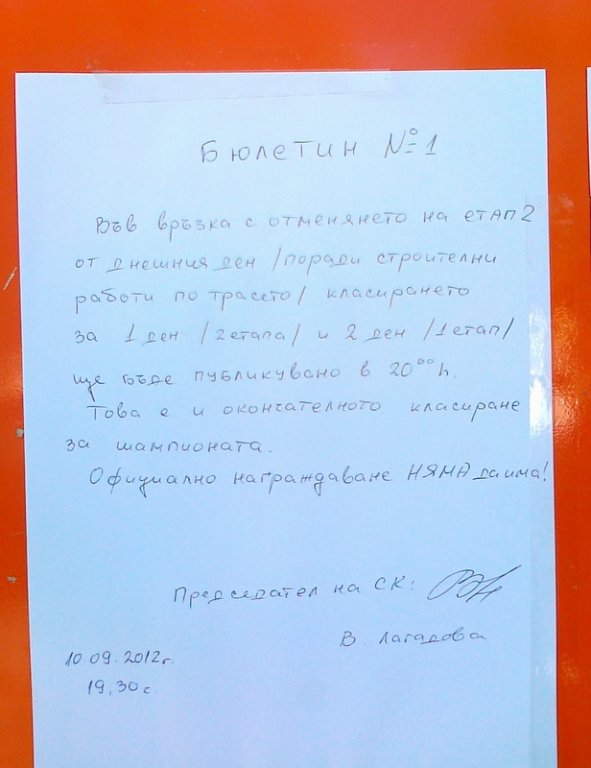 Бюлетин №1
Във връзка с отменянето на етап 2
от днешния ден /поради строителни
работи по трасето/ класирането
за 1 ден /2 етапа/ и 2 ден /1 етап/
ще бъде публикувано в 20⁰⁰ h.
Това е и окончателното класиране
за шампионата.
Официално награждаване НЯМА да има!
Председател на СК:
В. Лагадова
10.09.2012г.
19,30 с.